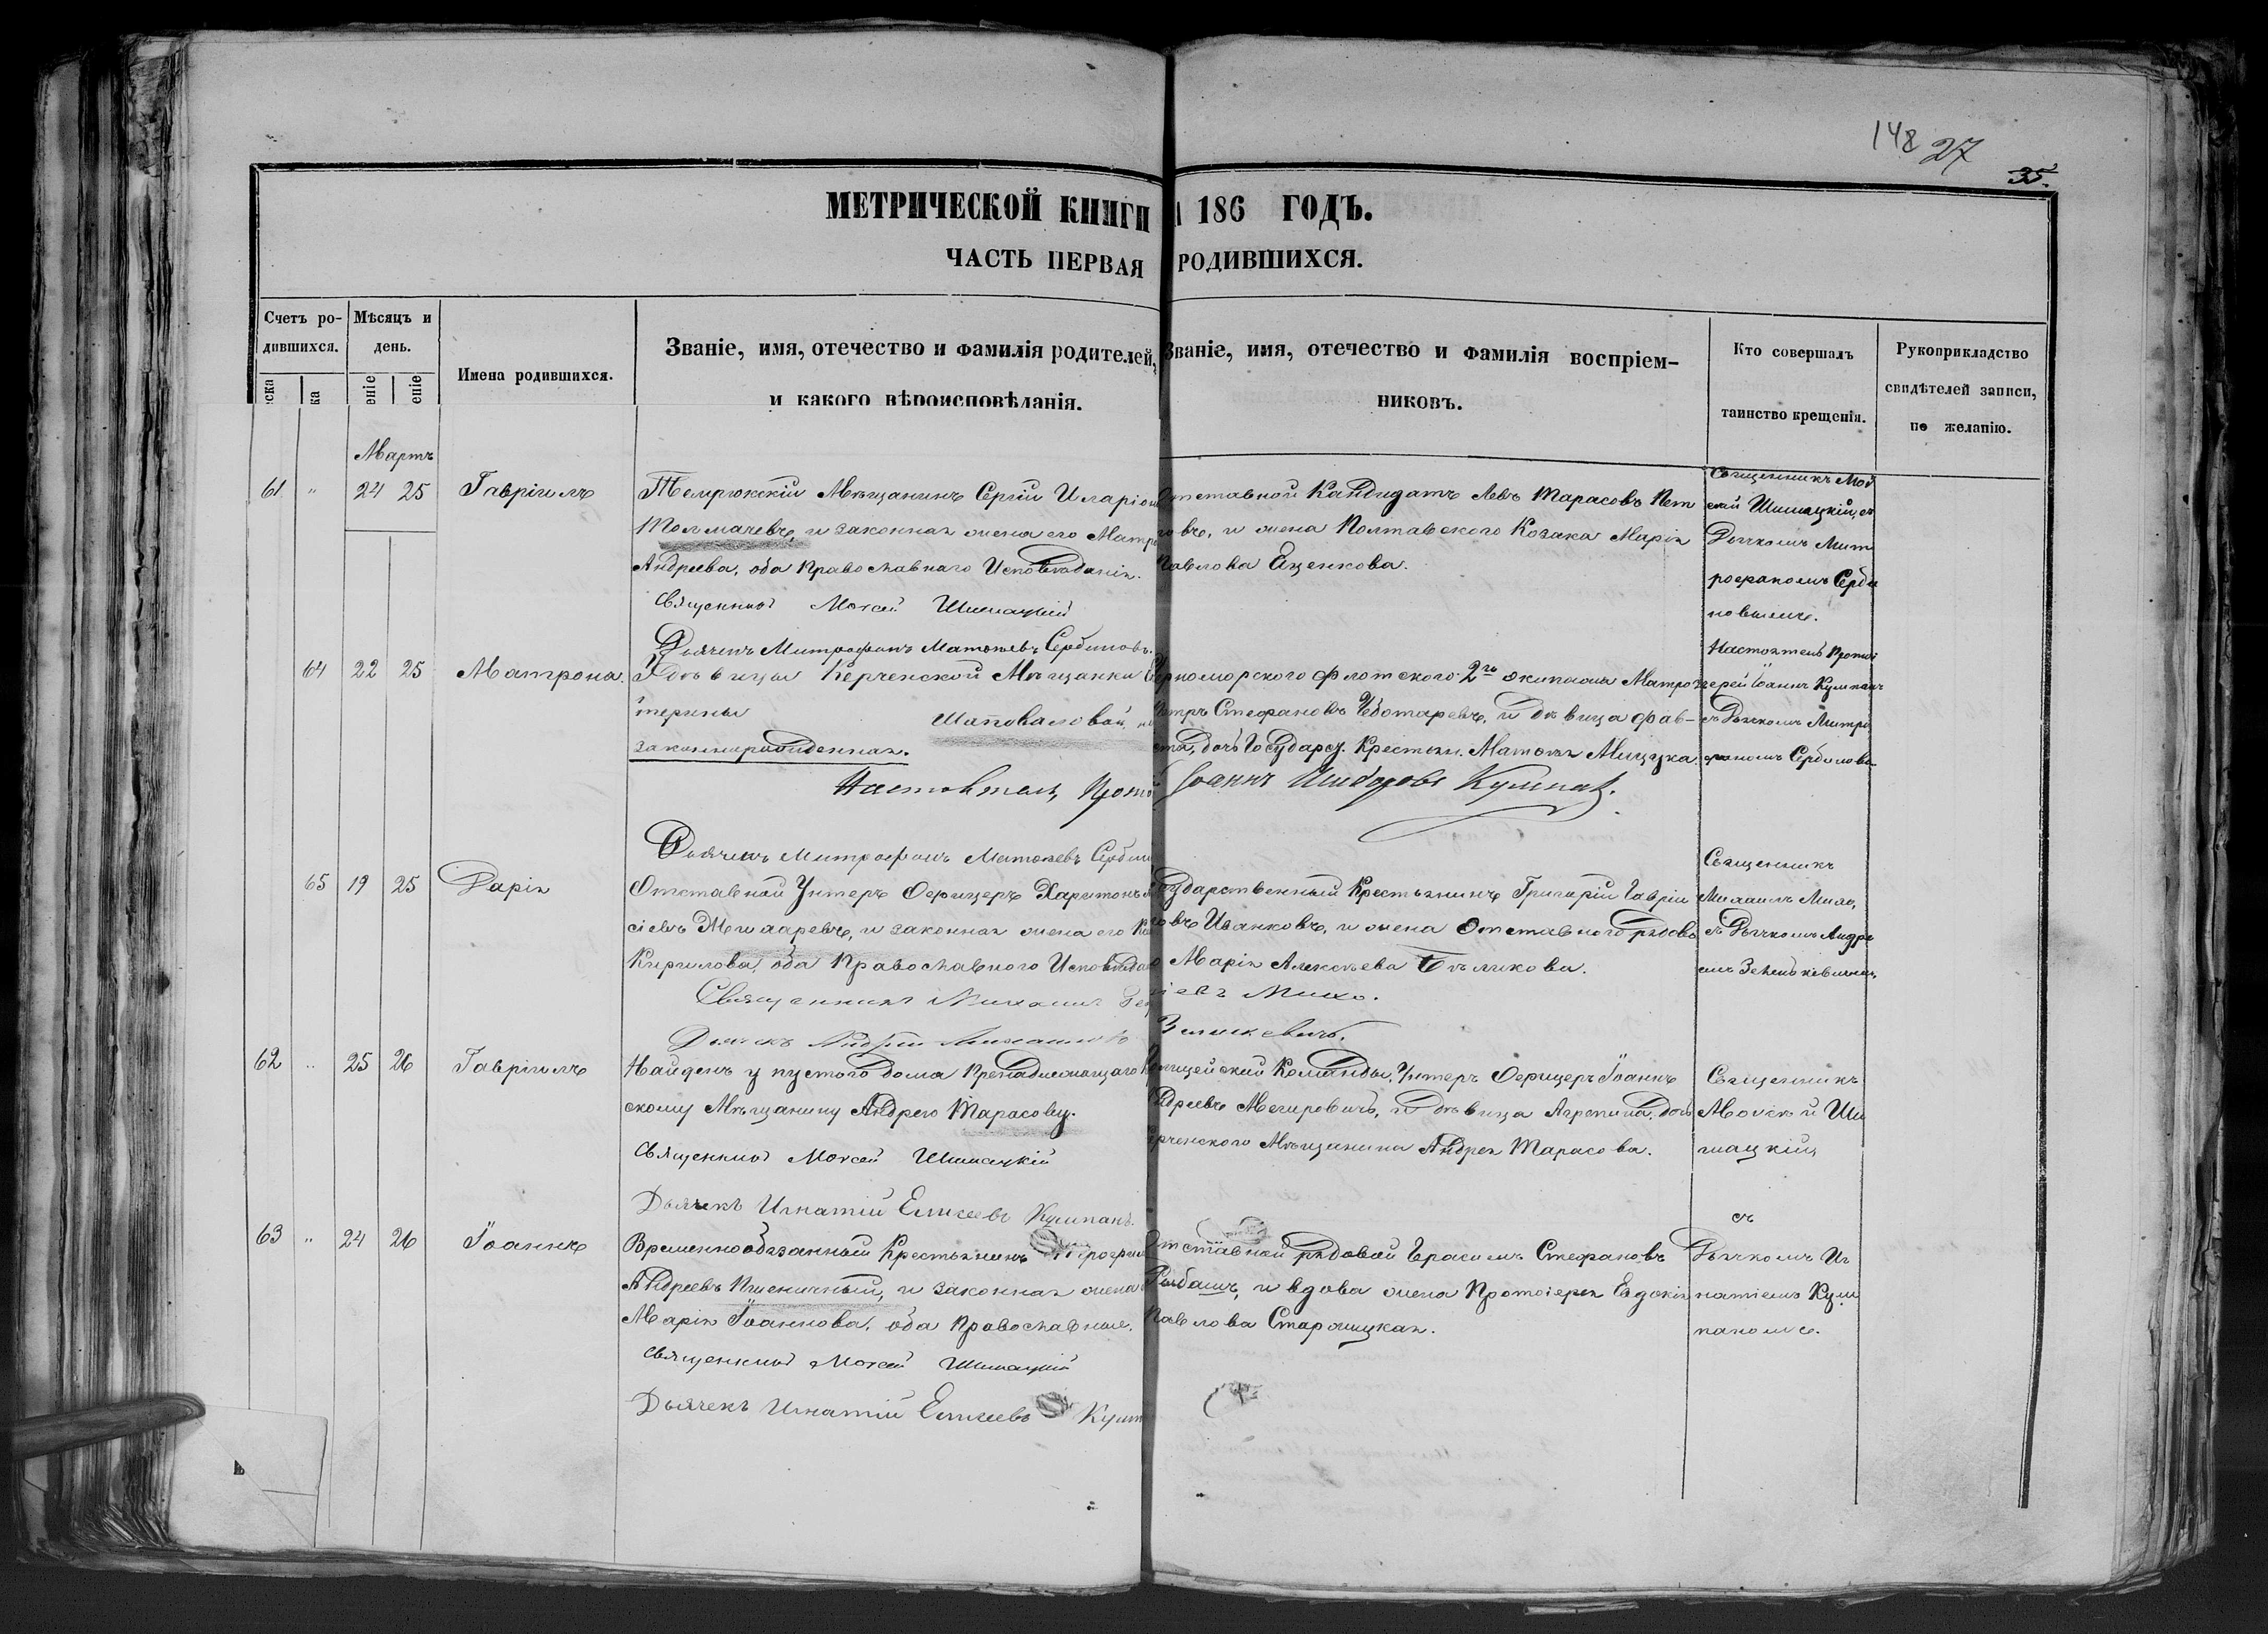 148 27
35.
МЕТРИЧЕСКОЙ КНИГИ 186 ГОДЪ.
ЧАСТЬ ПЕРВАЯ РОДИВШИХСЯ.
Счетъ ро-
дившихся.
Мѣсяцъ и
день.
Имена родившихся.
Званіе, имя, отечество и фамилія родителей,
и какого вѣроисповѣданія.
Званіе, имя, отечество и фамилія воспріем-
никовъ.
Кто совершалъ
таинство крещенія.
Рукоприкладство
свидѣтелей записи,
по желанію.
Мартъ
61 " 24 25 Гавріилъ
Темрюкскій Мѣщанинъ Сергій Иларіон
Толмачевъ, и законная жена его Матро
Андреева, оба Православнаго Исповѣданія.
Священникъ Моѵсей Шишацкій
Дьячекъ Митрофанъ Матѳіевъ Сербиновъ.
Отставной Кандидатъ Левъ Тарасовъ Пет
ровъ, и жена Полтавского Козака Марія
Павлова Ященкова.
Священникъ Мой
сей Шишацкій, съ
Дьячкомъ Мит
рофаномъ Серби
новымъ.
64 22 25 Матрона.
У дѣвицы Керченской Мѣщанки
терины Шаповаловой
законнорожденная.
Настоятель, Прото
Дьячекъ Митрофанъ Матѳіевъ Серби
Черноморского флотского 2го экипажа Матро
Петръ Стефановъ Чеботаревъ, и дѣвица Фав-
ста, дочь Государс. Крестьян. Матѳія Мицука.
Іоаннъ Кумпан.
Настоятель Протоі
ерей Іоаннъ Кумпанъ
съ Дьячкомъ Митро
фаномъ Сербиновы
65 19 25 Дарія
Отставной Унтеръ Офицеръ Харитонъ
сіевъ и законная жена его
Кирилова, оба Православного Исповѣдан
Священникъ Михаилъ Гео
Дьячекъ Андрей Михаиловъ
Государственный Крестьянинъ Григорій Гаврии
ловъ Иванковъ, и жена Отставного рядово
го Марія Алексѣева Бѣликова.
гіевъ Михо.
Зенькевичъ.
Священникъ
Михаилъ Михо,
съ Дьячкомъ Андре
емъ Зенькевичемъ,
62 " 25 26 Гавріилъ
Найденъ у пустого дома принадлежащаго
скому Мѣщанину Андрею Тарасову.
Священникъ Моѵсей Шишацкій
Дьячекъ Игнатій Елисеевъ Кумпанъ.
Полицейской Команды, Унтеръ Офицеръ Іоаннъ
Андреевъ Мегировичъ, и дѣвица Агрипина, дочь
Керченского Мѣщанина Андрея Тарасова.
Священникъ
Моисей Ши
шацкій,
съ
63 " 24 26 Іоаннъ
Временнообязанный Крестьянинъ
Андреевъ Пшеничный, и законная жена
Марія Іоаннова, оба Православные.
Священникъ Моѵсей Шишацкій
Дьячекъ Игнатій Елисеевъ Кумп
Отставной рядовой Герасимъ Стефановъ
Рыбашъ, и вдова жена Протоіерея Евдокія
Павлова Старжицкая.
Дьячкомъ Иг
натіемъ Кум
паномъ.